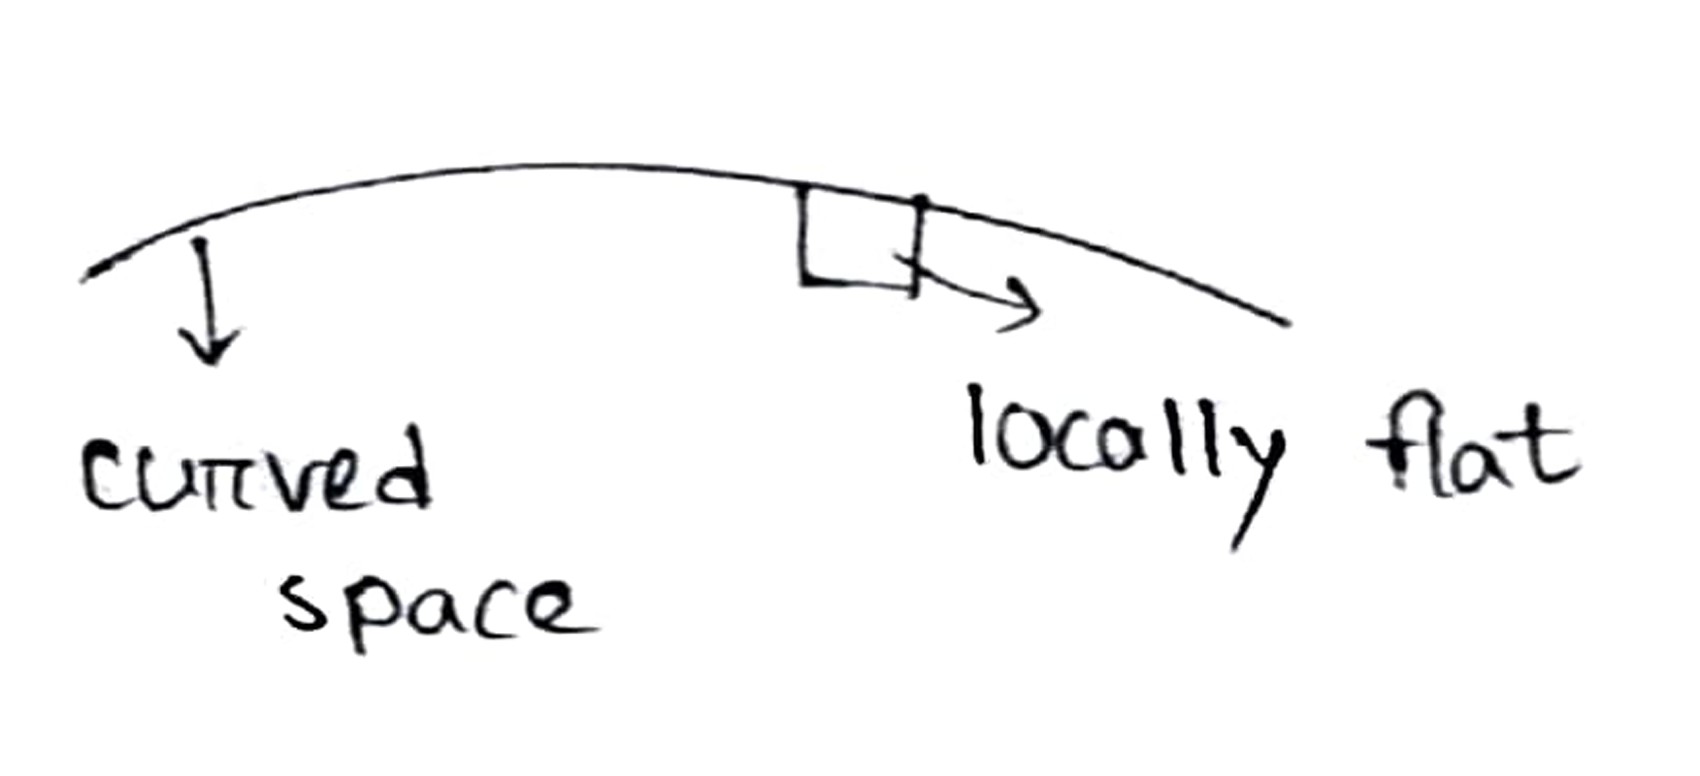 curved
space
locally flat